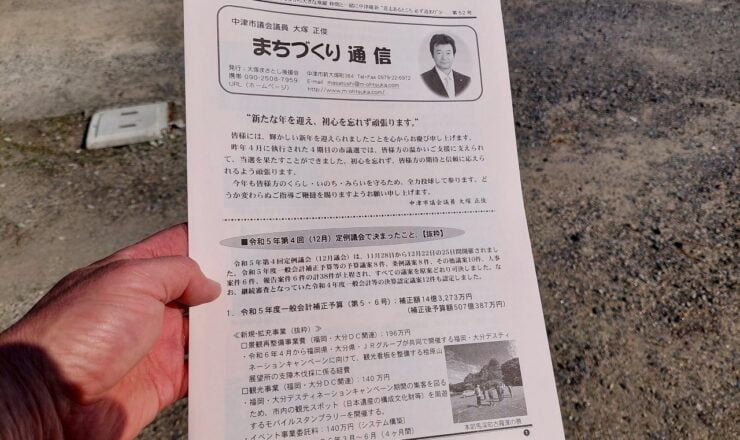 第52号
中津市議会議員 大塚 正俊
まちづくり 通信
発行:大塚まさとし後援会
携帯 090-2508-7959
URL(ホームページ)
http://www.m-ohtsuka.com/
“新たな年を迎え、初心を忘れず頑張ります。”
皆様には、輝かしい新年を迎えられましたことを心からお慶び申し上げます。
昨年4月に執行された4期目の市議選では、皆様方の温かいご支援に支えられ
て、当選を果たすことができました。初心を忘れず、皆様方の期待と信頼に応えら
れるよう頑張ります。
今年も皆様方のくらし・いのち・みらいを守るため、全力投球して参ります。ど
うか変わらぬご指導ご鞭撻を賜りますようお願い申し上げます。
中津市議会議員 大塚 正俊
■令和5年第4回(12月)定例議会で決まったこと、【抜粋】
令和5年第4回定例議会(12月議会)は、11月28日から12月22日の25日間開催されまし
た。令和5年度一般会計補正予算等の予算議案8件、条例議案8件、その他議案10件、人事
案件6件、報告案件6件の計38件が上程され、すべての議案を原案どおり可決しました。な
お、継続審査となっていた令和4年度一般会計等の決算認定議案12件も認定しました。
1.令和5年度一般会計補正予算(第5・6号):補正額14億3,273万円
(補正後予算額507億387万円)
≪新規・拡充事業(抜粋)≫
□景観再整備事業費(福岡・大分DC関連):196万円
・令和6年4月から福岡県・大分県・JRグループが共同で開催する福岡・大分デスティ
ネーションキャンペーンに向けて、観光看板を整備する桧原山
展望所の支障木伐採に係る経費
□観光事業(福岡・大分DC関連):140万円
・福岡・大分デスティネーションキャンペーン期間の集客を図る
ため、市内の観光スポット(日本遺産の構成文化財等)を周遊
するモバイルスタンプラリーを開催する。
・イベント事業委託料:140万円(システム構築)
年3月~6月(4ヶ月間)